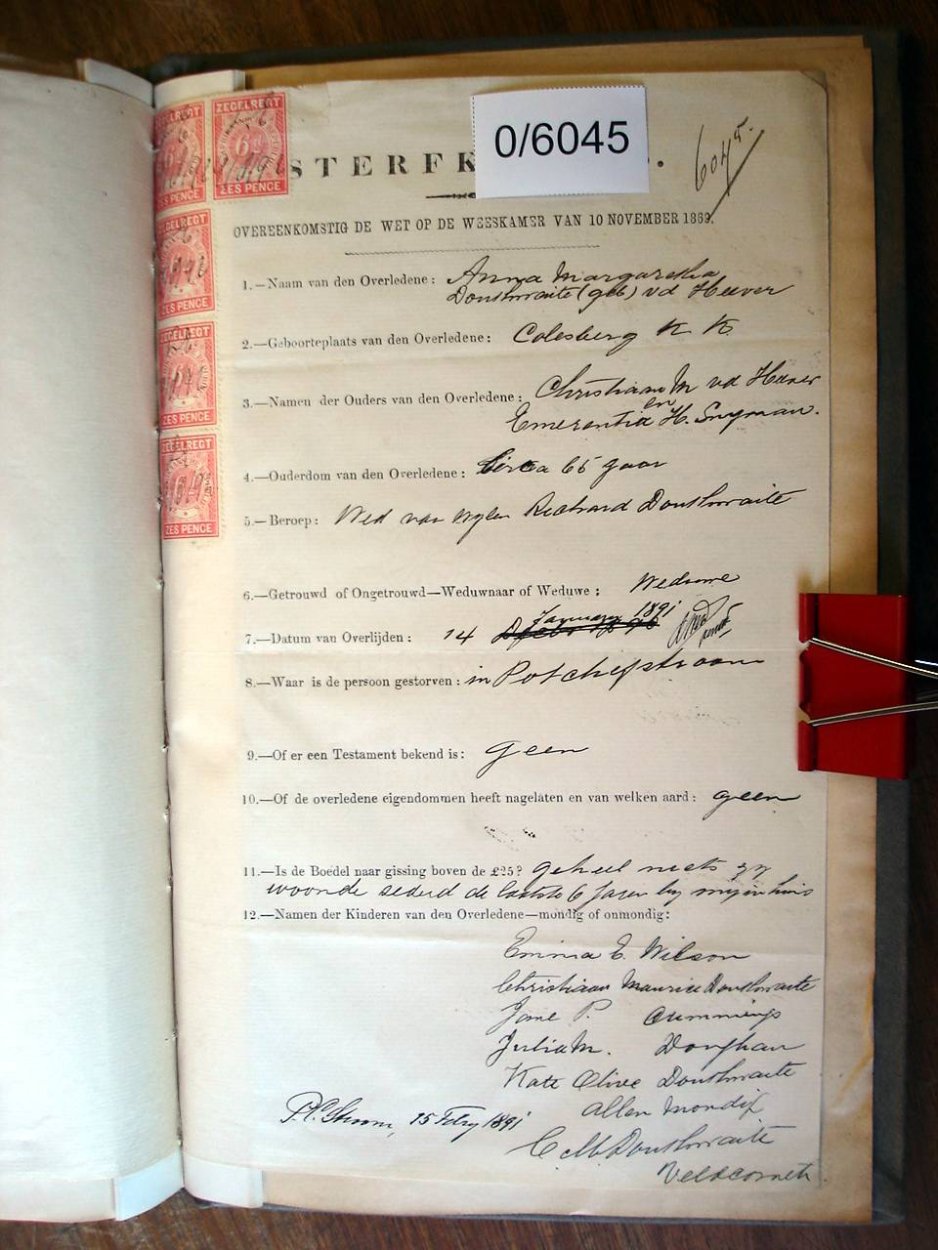 ZEGELREGT
6d
ZES PENCE
ZEGELREGT
6d
ZES PENCE
ZEGELREGT
ZES PENCE
ZEGELREGT
ZES PENCE
ZEGELREGT
ZES PENCE
0/6045
6045.
STERFK
OVEREENKOMSTIG DE WET OP DE WEESKAMER VAN 10 NOVEMBER 1869.
1.—Naam van den Overledene: Anna Margaretha
Douthwaite (geb) vd Heever
2.—Geboorteplaats van den Overledene: Colesberg K K
3.—Namen der Ouders van den Overledene: Christiaan M vd Heever
en
Emerentia H. Snyman.
4.—Ouderdom van den Overledene: Circa 65 jaar
5.—Beroep: Wed van wylen Richard Douthwaite
6.—Getrouwd of Ongetrouwd—Weduwnaar of Weduwe: Weduwe
January 1891
7.—Datum van Overlijden: 14
8.—Waar is de persoon gestorven: in Potchefstroom
9.—Of er een Testament bekend is: Geen
10.—Of de overledene eigendommen heeft nagelaten en van welken aard: geen
11.—Is de Boedel naar gissing boven de £25? geheel niets zy
woonde sederd de laatste 6 Jaren by myn huis
12.—Namen der Kinderen van den Overledene—mondig of onmondig:
Emma E. Wilson
Christiaan Maurice Douthwaite
Jane P. Cummings
Julia M.
Kate Olive Douthwaite
Allen Mondig
15 Febry 1891
C M Douthwaite
Veldcornet